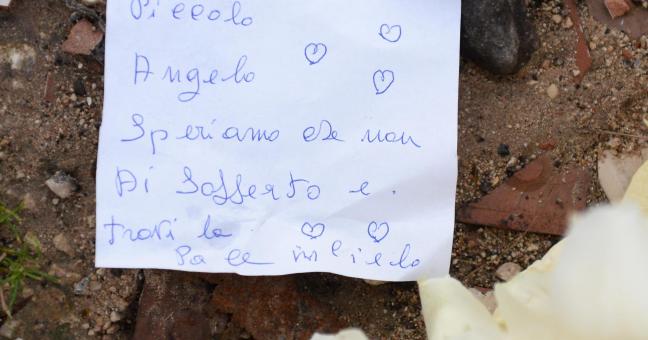 Piccolo
Angelo
Speriamo che non
Ai Sofferto e.
trovi la
Pace in cielo